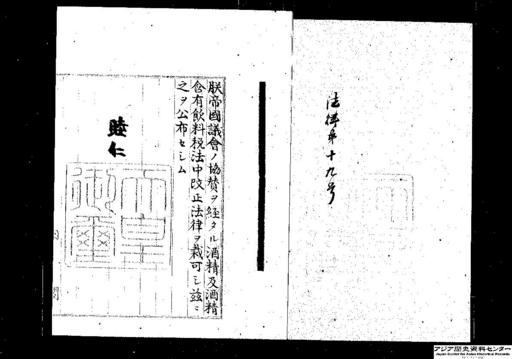 法律第十九号
朕帝國議會ノ協賛ヲ経タル酒精及酒精
含有飲料税法中改正法律ヲ裁可シ茲ニ
之ヲ公布セシム
睦仁
天皇
御璽
アジア歴史資料センター
Japan Center for Asian Historical Records